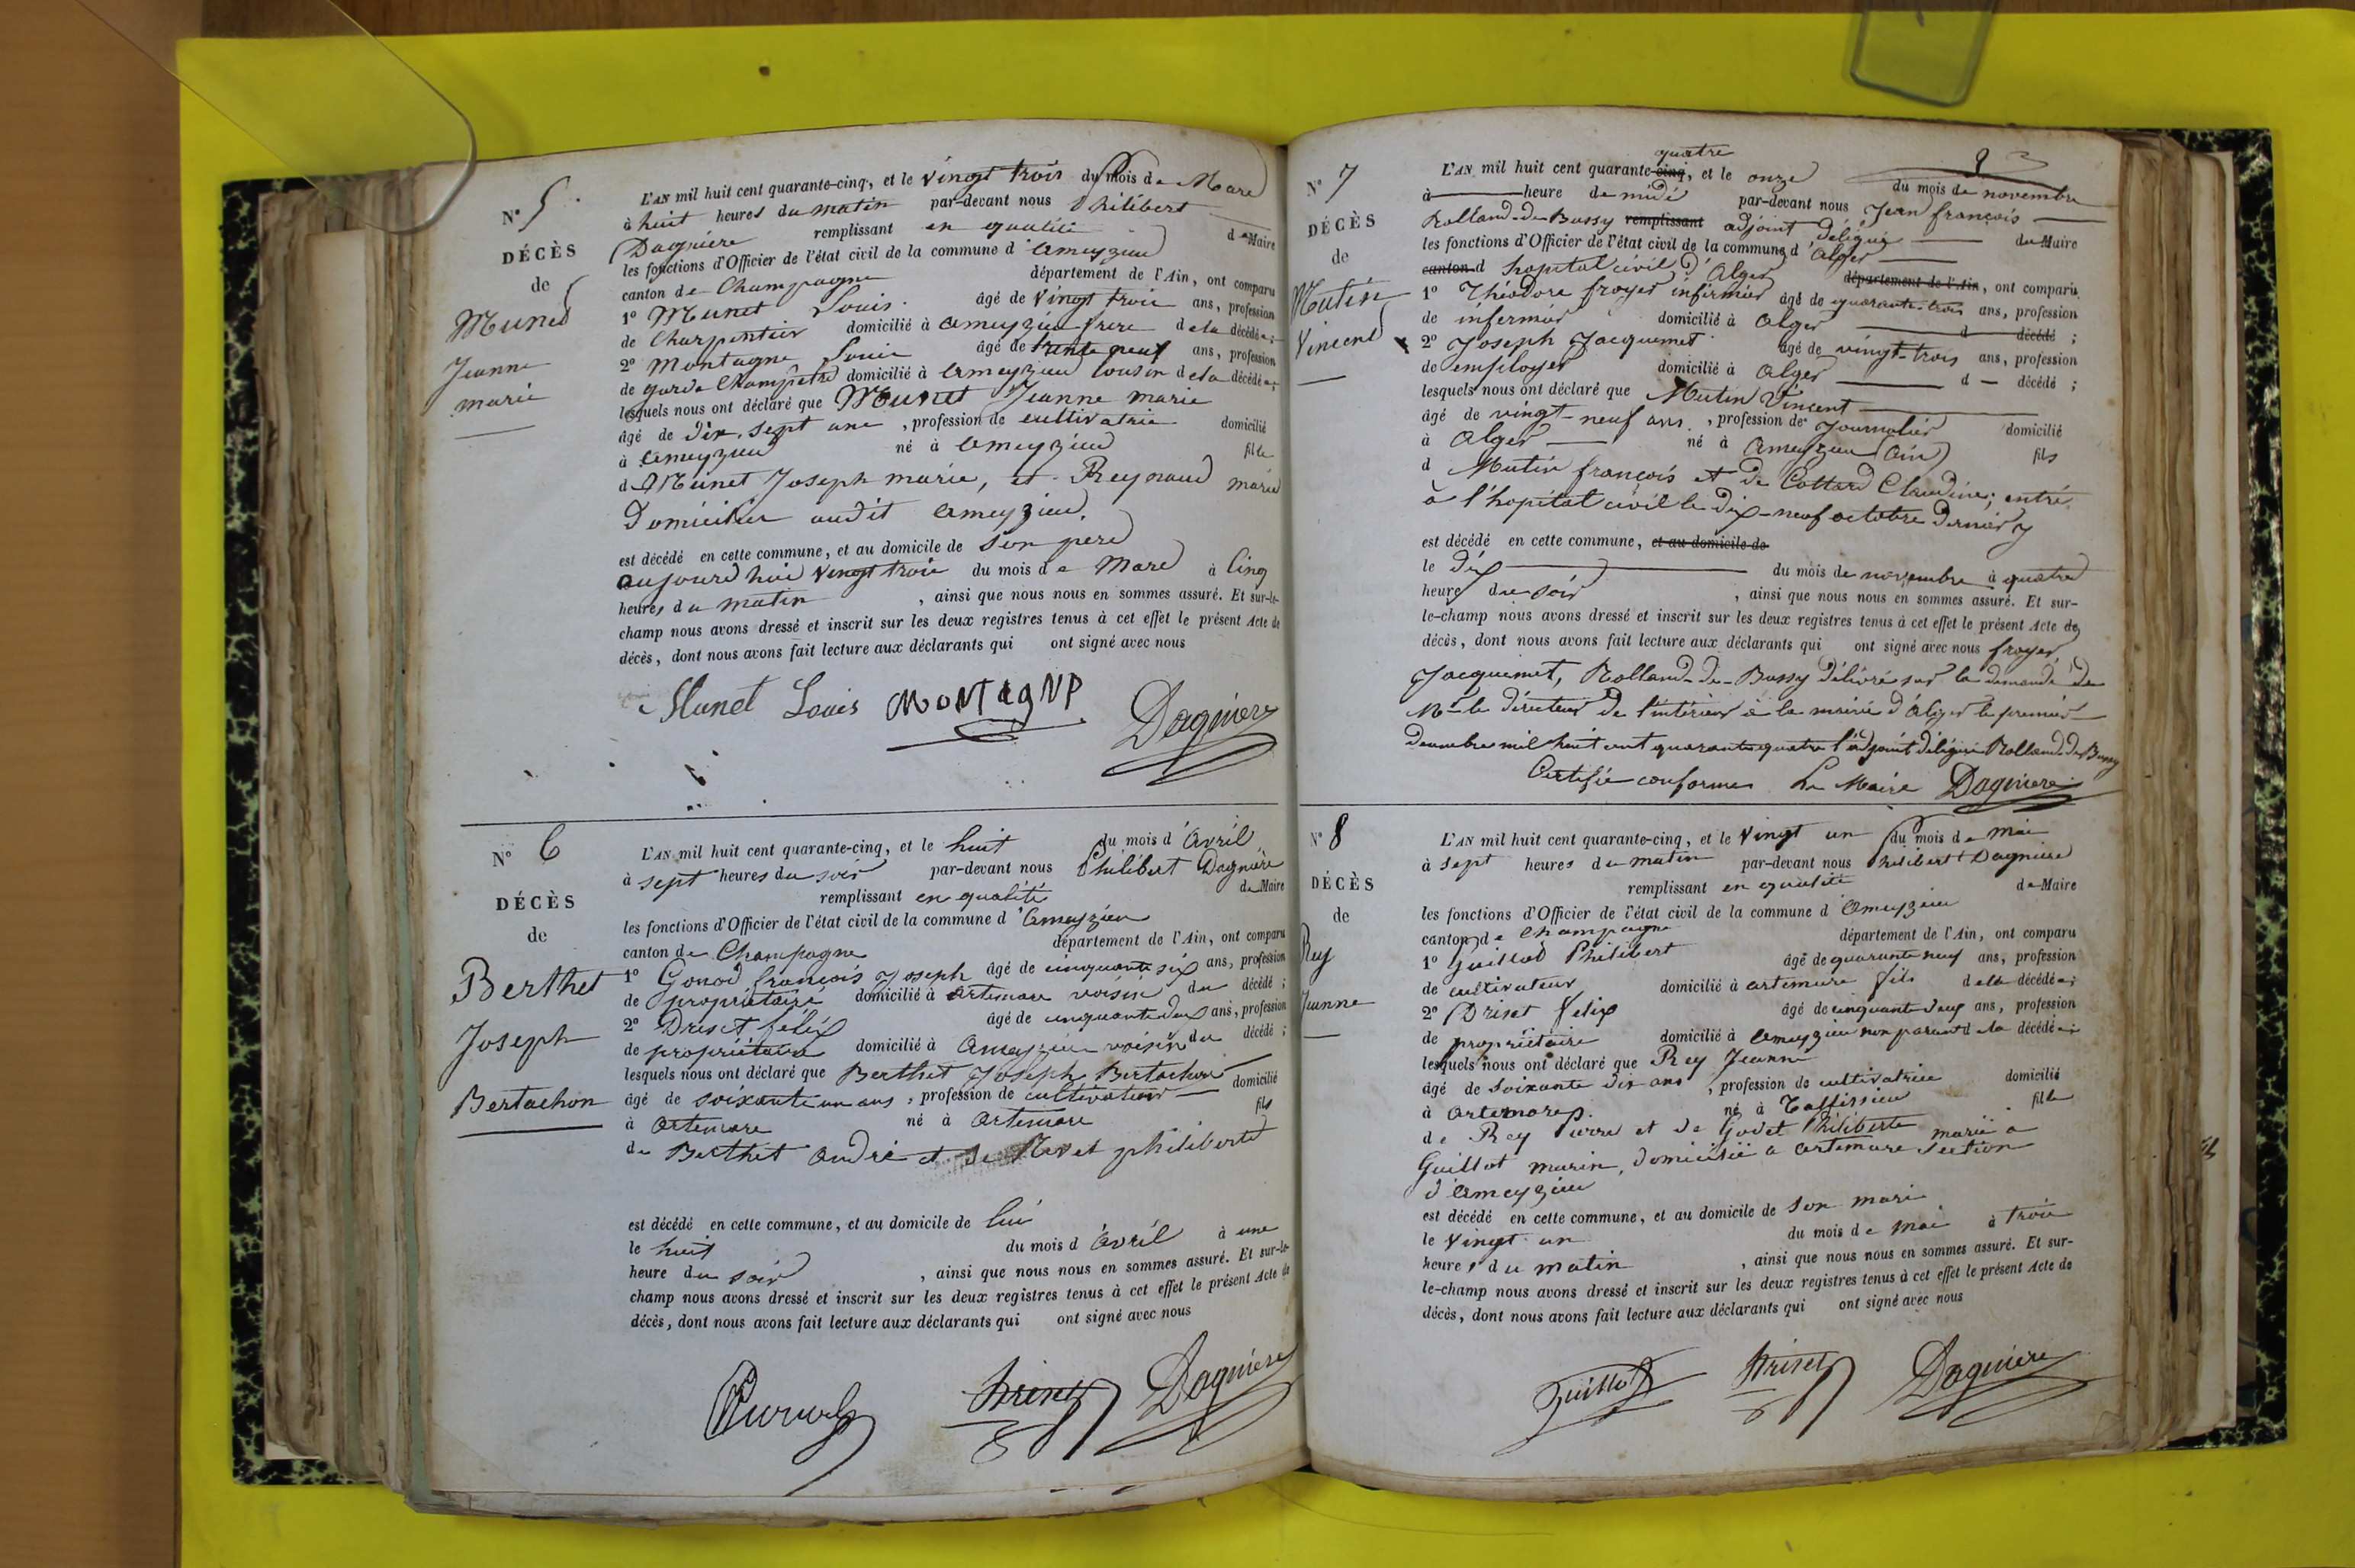 N° 5
DÉCÈS
de
Munet
Jeanne
marie
L'AN mil huit cent quarante-cinq, et le vingt trois du mois de Mars
à huit heures du matin par-devant nous Philibert
Dagnière remplissant en qualité de Maire
les fonctions d'Officier de l'état civil de la commune d'ameyzieu
canton de Champagne département de l'Ain, ont comparu
1° Munet Louis âgé de vingt trois ans, profession
de Charpentier domicilié à ameyzieu frere de la décédée;
2° Montagne Louis âgé de trente neuf ans, profession
de garde champêtre domicilié à ameyzieu cousin de la décédée;
lesquels nous ont déclaré que Munet Jeanne marie
âgé de dix-sept ans, profession de cultivatrice domicilié
à ameyzieu né à ameyzieu fille
de Munet Joseph marie, et Reynaud marie
Domiciliés audit ameyzieu,
est décédé en cette commune, et au domicile de son pere
aujourd'hui vingt trois du mois de Mars à cinq
heures du matin, ainsi que nous nous en sommes assuré. Et sur-le-
champ nous avons dressé et inscrit sur les deux registres tenus à cet effet le présent Acte de
décès, dont nous avons fait lecture aux déclarants qui ont signé avec nous
Munet Louis MONTAGNE Dagniere
N° 6
DÉCÈS
de
Berthet
Joseph
Bertachon
L'AN mil huit cent quarante-cinq, et le huit du mois d'avril
à sept heures du soir par-devant nous Philibert Dagnière
remplissant en qualité de Maire
les fonctions d'Officier de l'état civil de la commune d'ameyzieu
canton de Champagne département de l'Ain, ont comparu
1° Gonod françois Joseph âgé de cinquante six ans, profession
de propriétaire domicilié à artemare voisin du décédé;
2° Driset félix âgé de cinquante deux ans, profession
de propriétaire domicilié à ameyzieu voisin du décédé;
lesquels nous ont déclaré que Berthet Joseph Bertachon
âgé de soixante un ans, profession de cultivateur domicilié
à artemare né à artemare fils
de Berthet andré et de Nevet philiberte
est décédé en cette commune, et au domicile de lui
le huit du mois d'avril à une
heure du soir, ainsi que nous nous en sommes assuré. Et sur-le-
champ nous avons dressé et inscrit sur les deux registres tenus à cet effet le présent Acte de
décès, dont nous avons fait lecture aux déclarants qui ont signé avec nous
Driset Dagniere
N° 7
DÉCÈS
de
Mutin
Vincent
quatre
L'AN mil huit cent quarante-cinq, et le onze du mois de novembre
à heure de midi par-devant nous Jean françois
Rolland-de-Bussy remplissant adjoint délégué du Maire
les fonctions d'Officier de l'état civil de la commune d'Alger
canton d hopital civil d'Alger département de l'Ain, ont comparu
1° Théodore froyer infirmier âgé de quarante-trois ans, profession
de infirmier domicilié à Alger d décédé;
2° Joseph Jacquemet âgé de vingt-trois ans, profession
de employer domicilié à Alger d décédé;
lesquels nous ont déclaré que Mutin Vincent
âgé de vingt-neuf ans, profession de Journalier domicilié
à Alger né à ameyzieu (ain) fils
d Mutin françois et de Cottard Claudine; entré
à l'hopital civil le dix-neuf octobre dernier y
est décédé en cette commune, et au domicile de
le dix du mois de novembre à quatre
heure du soir, ainsi que nous nous en sommes assuré. Et sur-
le-champ nous avons dressé et inscrit sur les deux registres tenus à cet effet le présent Acte de
décès, dont nous avons fait lecture aux déclarants qui ont signé avec nous froyer
Jacquemet, Rolland-de-Bussy délivré sur la demande de
Mr le directeur de l'intérieur à la mairie d'Alger le premier
decembre mil huit cent quarante quatre l'adjoint délégué Rolland de Bussy
Certifié conforme Le Maire Dagniere
N° 8
DÉCÈS
de
Rey
Jeanne
L'AN mil huit cent quarante-cinq, et le vingt un du mois de mai
à sept heures du matin par-devant nous Philibert Dagniere
remplissant en qualité de Maire
les fonctions d'Officier de l'état civil de la commune d ameyzieu
canton de champagne département de l'Ain, ont comparu
1° Guillot Philibert âgé de quarante neuf ans, profession
de cultivateur domicilié à artemare fils de la décédée;
2° Driset felix âgé de cinquante deux ans, profession
de propriétaire domicilié à ameyzieu non parent de la décédée;
lesquels nous ont déclaré que Rey Jeanne
âgé de soixante dix ans, profession de cultivatrice domicilié
à artemare né à Talissieu fille
de Rey Pierre et de Godet Philiberte mariée a
Guillot marin, domiciliée a artemare section
d'ameyzieu
est décédé en cette commune, et au domicile de son mari
le vingt un du mois de mai à trois
heures du matin, ainsi que nous nous en sommes assuré. Et sur-
le-champ nous avons dressé et inscrit sur les deux registres tenus à cet effet le présent Acte de
décès, dont nous avons fait lecture aux déclarants qui ont signé avec nous
Guillot Driset Dagniere